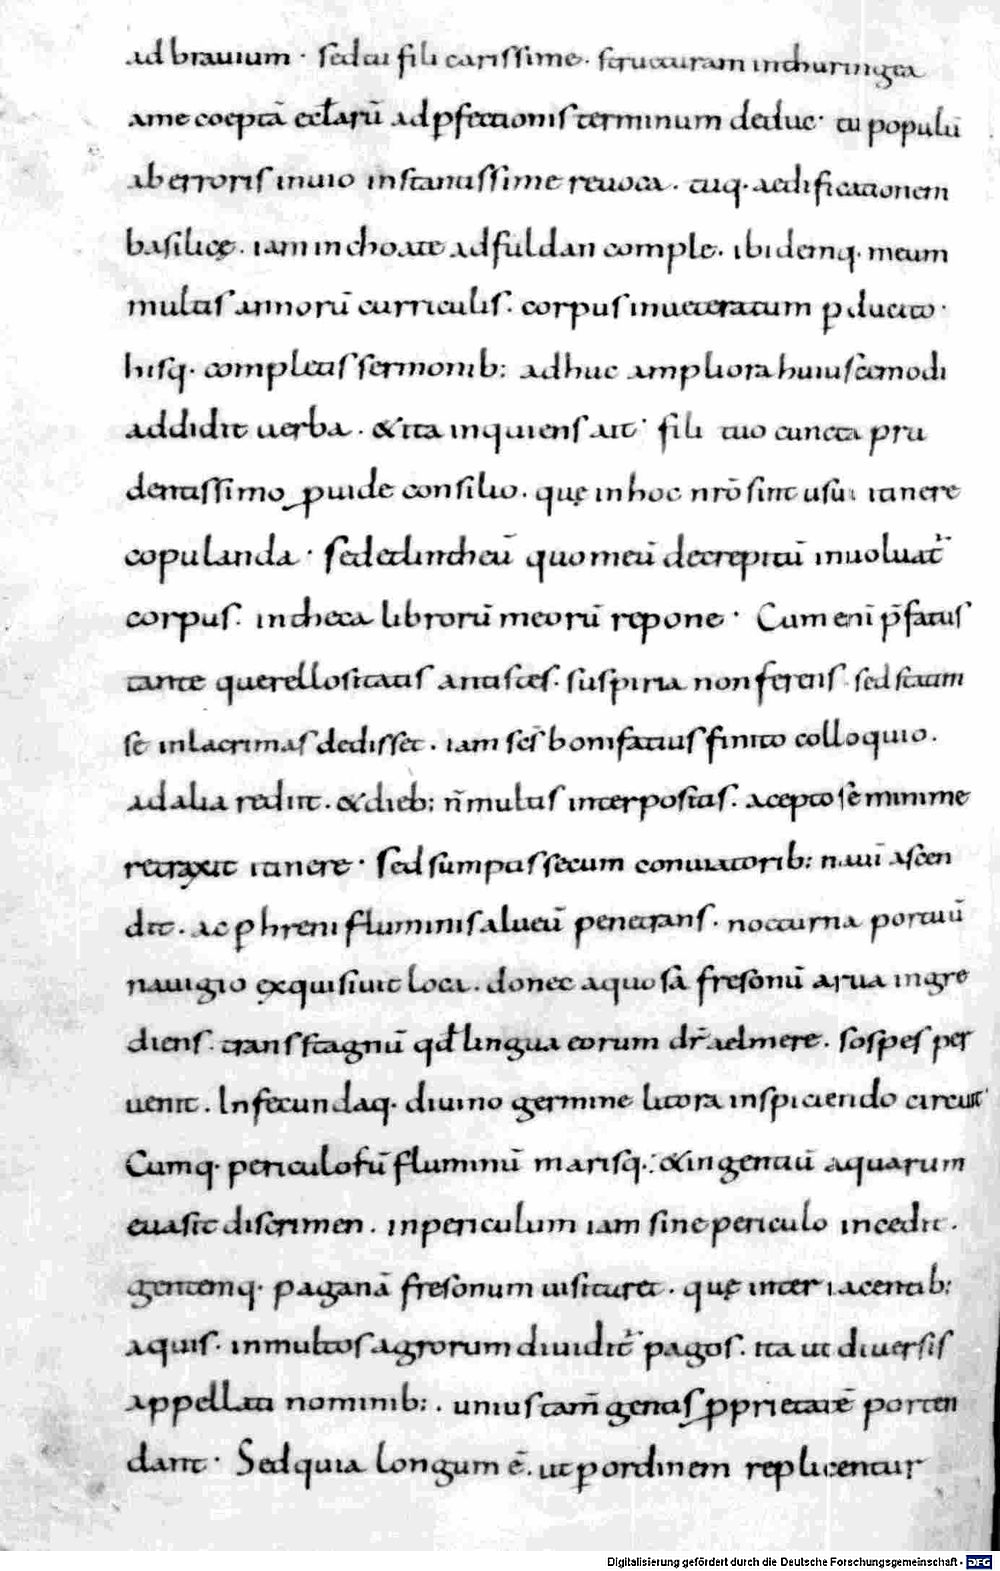 ad brauium · sed tu fili carissime · structuram in thuringea
a me coeptā ecclarū ad ꝑfectionis terminum deduc · tu populū
ab erroris inuio instantissime reuoca . tuq· aedificationem
basilicę . iam inchoate ad fuldan comple . ibidemq· meum
multis annorū curriculis . corpus inueteratum ꝑducito ·
hisq· completis sermonib: adhuc ampliora huiuscemodi
addidit uerba . & ita inquiens ait · fili tuo cuncta pru
dentissimo ꝓuide consilio . quę in hoc nr̄o sint usui itinere
copulanda · sed et lintheū quo meū decrepitū inuoluat̄
corpus . in theca librorū meorū repone · Cum enī p̄fatus
tante querellositatis antistes . suspiria non ferens . sed statim
se in lacrimas dedisset . iam sc̄s bonifatius finito colloquio .
ad alia rediit . & dieb: n̄ multis interpositis . acepto se minime
retraxit itinere · Sed sumptis secum conuiatorib: nauī ascen
dit . ac ꝑ hreni fluminis alueū penetrans . nocturna portuū
nauigio exquisiuit loca . donec aquosa fresonū arua ingre
diens . trans stagnū qđ lingua eorum dr̄ aelmere . sospes per
uenit . Infecundaq· diuino germine litora inspiciendo circuit
Cumq· periculosū fluminū marisq· & ingentiū aquarum
euasit discrimen . in periculum iam sine periculo incedit .
gentemq· paganā fresonum uisitaret . quę interiacentib:
aquis . in multos agrorum diuidit̄ pagos . ita ut diuersis
appellati nominib: . unius tam̄ gentis ꝓprietatē porten
dant · Sed quia longum ē . ut ꝑ ordinem replicentur
Digitalisierung gefördert durch die Deutsche Forschungsgemeinschaft - DFG